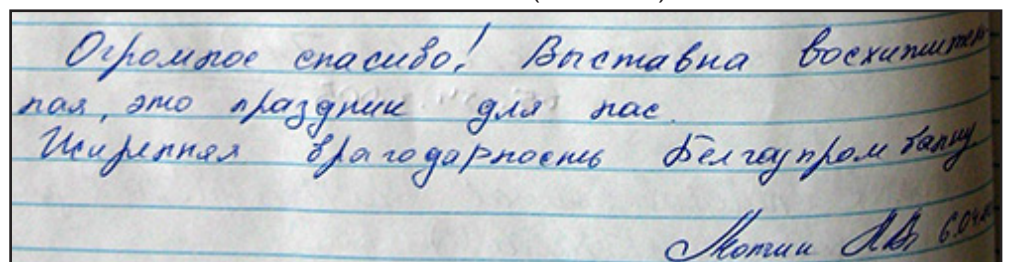 Огромное спасибо! Выставка восхититель
ная, это праздник для нас.
Искренняя благодарность Белгазпромбанку